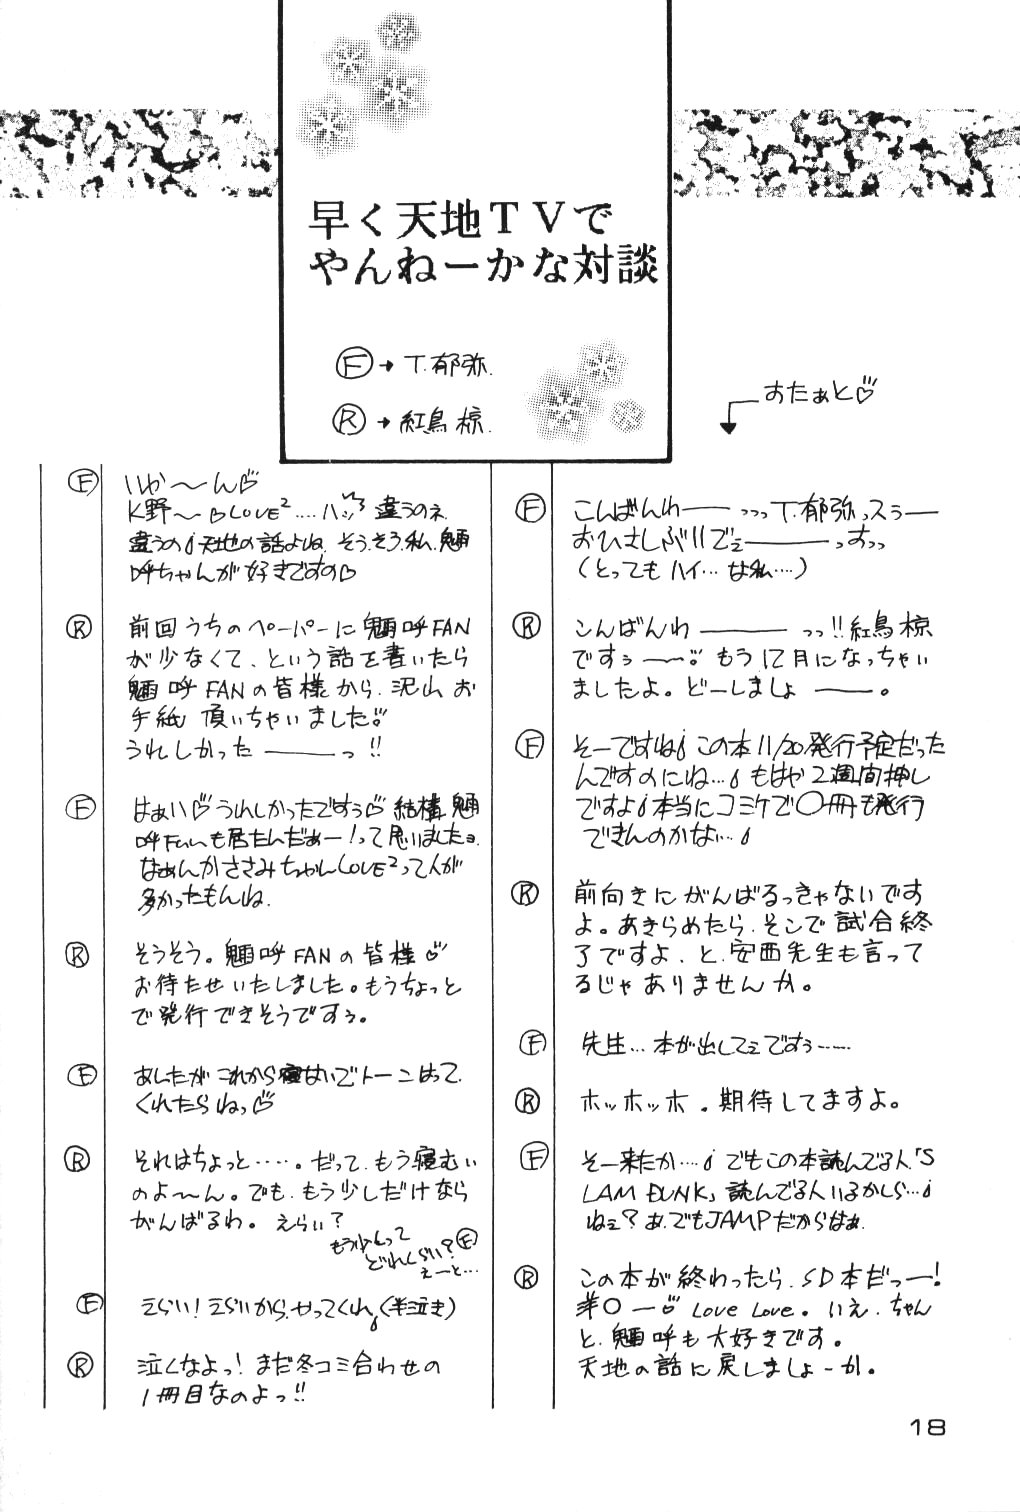 早く天地TVで
やんねーかな対談
Ⓕ→T.郁弥.
Ⓡ→紅鳥 椋.
すたぁと♡
Ⓕ こんばんわ──っっっT.郁弥っスぅ──
おひさしぶりでぇ────っすっっ
(とってもハイ…な私…)
Ⓡ こんばんわ────っっ!!紅鳥 椋
ですぅ──。もう12月になっちゃい
ましたよ。どーしましょ──。
Ⓕ そーですね この本11/20発行予定だった
んですのにね… もはや2週間押し
ですよ 本当にコミケで〇冊も発行
できんのかな…
Ⓡ 前向きにがんばるっきゃないです
よ。あきらめたら、そこで試合終
了ですよ、と、安西先生も言って
るじゃありませんか。
Ⓕ 先生… 本が出してぇですぅ……
Ⓡ ホッホッホ。期待してますよ。
Ⓕ そー来たか… でもこの本読んでる人「S
LAM DUNK」読んでる人いるかしら…
ねぇ?あ、でもJAMPだからはぁ
Ⓡ この本が終わったら、SD本だっー!
洋〇ー♡ LOVE LOVE。いえ、ちゃん
と、魎呼も大好きです。
天地の話に戻しましょーか。
Ⓕ いか〜ん♡
K野〜♡LOVE²….ハッ 違うのネ
違うの 天地の話よね そう、そう、私、魎
呼ちゃんが好きですの♡
Ⓡ 前回うちのペーパーに魎呼FAN
が少なくて、という話を書いたら
魎呼FANの皆様から、沢山お
手紙頂いちゃいました♡
うれしかった───っ!!
Ⓕ はぁい♡うれしかったですぅ♡結構魎
呼FANも居たんだぁー!って思いましたョ
なぁんかささみちゃんLOVE²って人が
多かったもんね.
Ⓡ そうそう。魎呼FANの皆様♡
お待たせいたしました。もうちょっと
で発行できそうですぅ。
Ⓕ あしたが これから寝ないでトーンはって
くれたらねっ♡
Ⓡ それはちょっと……。だって、もう寝むい
のよ〜ん。でも、もう少しだけなら
がんばるわ。えらい?
もう少しって
どれくらい?Ⓕ
えーと…
Ⓕ えらい!えらいから、やってくれ(半泣き)
Ⓡ 泣くなよっ!まだ冬コミ合わせの
1冊目なのよっ!!
18